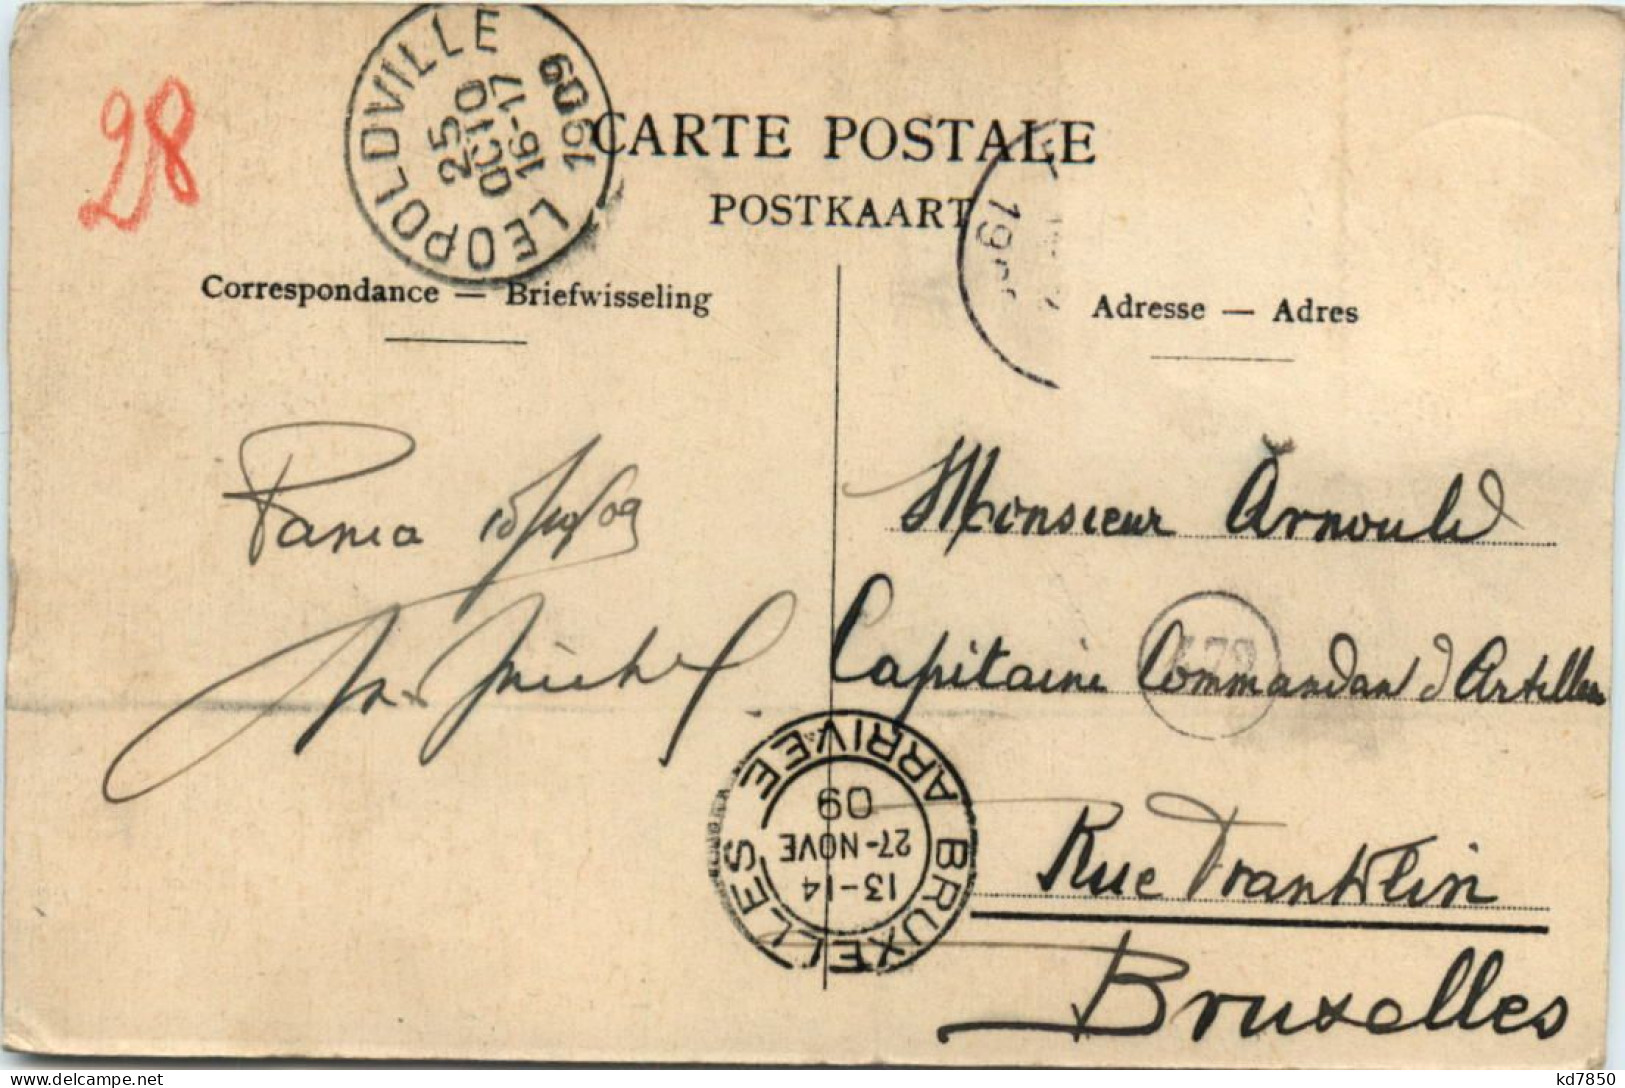 28
LEOPOLDVILLE
25
OC 10
16-17
1909
CARTE POSTALE
POSTKAART
19
Correspondance — Briefwisseling
Adresse — Adres
Pania 15/10/09
Michel
Monsieur Arnould
Capitaine Commandan d'Artillerie
Rue Franklin
Bruxelles
BRUXELLES ARRIVEE
13-14
27-NOVE
09
delcampe.net
kd7850